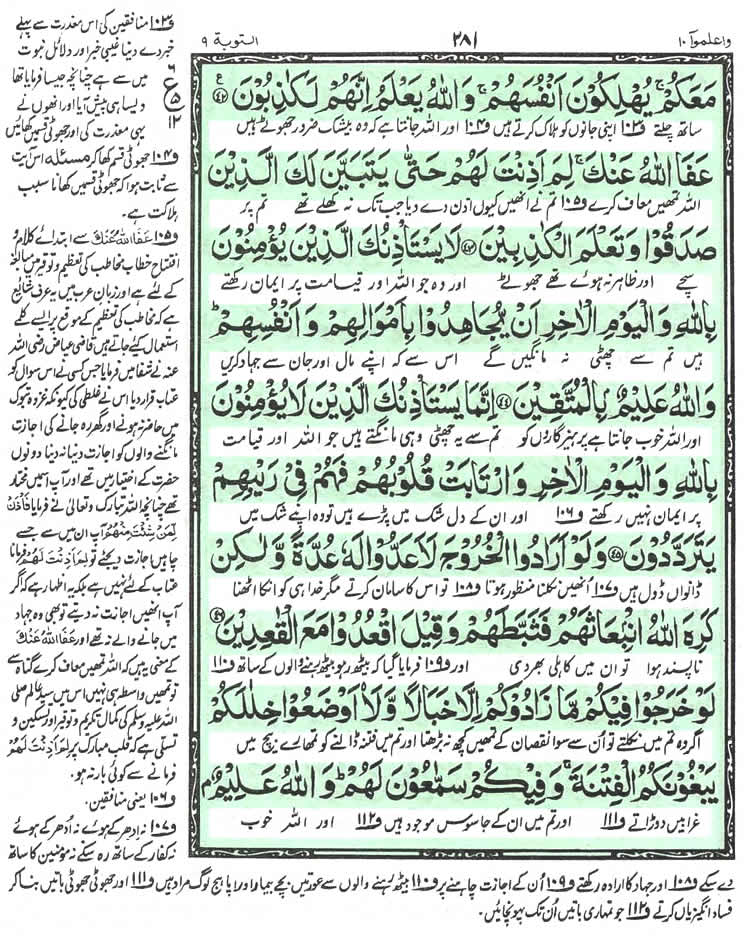 واعلموآ ١٠
٢٨١
التوبة ٩
مَعَكُمْ ۚ یُهْلِكُوْنَ اَنْفُسَهُمْ ۚ وَاللّٰهُ یَعْلَمُ اِنَّهُمْ لَكٰذِبُوْنَ ﴿۴۲﴾
ساتھ چلتے ف۱۰۳ اپنی جانوں کو ہلاک کرتے ہیں ف۱۰۴ اور اللہ جانتا ہے کہ وہ بیشک ضرور جھوٹے ہیں
عَفَا اللّٰهُ عَنْكَ ۚ لِمَ اَذِنْتَ لَهُمْ حَتّٰی یَتَبَیَّنَ لَكَ الَّذِیْنَ
اللہ تمھیں معاف کرے ف۱۰۵ تم نے انھیں کیوں اذن دے دیا جب تک نہ کھلے تھے تم پر
صَدَقُوْا وَ تَعْلَمَ الْكٰذِبِیْنَ ﴿۴۳﴾ لَا یَسْتَاْذِنُكَ الَّذِیْنَ یُؤْمِنُوْنَ
سچے اور ظاہر نہ ہوئے تھے جھوٹے اور وہ جو اللہ اور قیامت پر ایمان رکھتے
بِاللّٰهِ وَ الْیَوْمِ الْاٰخِرِ اَنْ یُّجَاهِدُوْا بِاَمْوَالِهِمْ وَ اَنْفُسِهِمْ ؕ
ہیں تم سے چھٹی نہ مانگیں گے اس سے کہ اپنے مال اور جان سے جہاد کریں
وَ اللّٰهُ عَلِیْمٌۢ بِالْمُتَّقِیْنَ ﴿۴۴﴾ اِنَّمَا یَسْتَاْذِنُكَ الَّذِیْنَ لَا یُؤْمِنُوْنَ
اور اللہ خوب جانتا ہے پرہیزگاروں کو تم سے یہ چھٹی وہی مانگتے ہیں جو اللہ اور قیامت
بِاللّٰهِ وَ الْیَوْمِ الْاٰخِرِ وَ ارْتَابَتْ قُلُوْبُهُمْ فَهُمْ فِیْ رَیْبِهِمْ
پر ایمان نہیں رکھتے ف۱۰۶ اور ان کے دل شک میں پڑے ہیں تو وہ اپنے شک میں
یَتَرَدَّدُوْنَ ﴿۴۵﴾ وَ لَوْ اَرَادُوا الْخُرُوْجَ لَاَعَدُّوْا لَهٗ عُدَّةً وَّ لٰكِنْ
ڈانواں ڈول ہیں ف۱۰۷ اُنھیں نکلنا منظور ہوتا ف۱۰۸ تو اس کا سامان کرتے مگر خدا ہی کو انکا اٹھنا
كَرِهَ اللّٰهُ انْۢبِعَاثَهُمْ فَثَبَّطَهُمْ وَ قِیْلَ اقْعُدُوْا مَعَ الْقٰعِدِیْنَ ﴿۴۶﴾
ناپسند ہوا تو ان میں کاہلی بھر دی اور ف۱۰۹ فرمایا گیا کہ بیٹھ رہو بیٹھ رہنے والوں کے ساتھ ف۱۱۰
لَوْ خَرَجُوْا فِیْكُمْ مَّا زَادُوْكُمْ اِلَّا خَبَالًا وَّ لَاۡاَوْضَعُوْا خِلٰلَكُمْ
اگر وہ تم میں نکلتے تو اُن سے سوا نقصان کے تمھیں کچھ نہ بڑھتا اور تم میں فتنہ ڈالنے کو تمھارے بیچ میں
یَبْغُوْنَكُمُ الْفِتْنَةَ ۚ وَ فِیْكُمْ سَمّٰعُوْنَ لَهُمْ ؕ وَ اللّٰهُ عَلِیْمٌۢ
غرابیں دوڑاتے ف۱۱۱ اور تم میں ان کے جاسوس موجود ہیں ف۱۱۲ اور اللہ خوب
ف۱۰۳ منافقین کی اس معذرت سے پہلے
خبر دے دینا غیبی خبر اور دلائلِ نبوت
میں سے ہے چنانچہ جیسا فرمایا تھا
ویسا ہی پیش آیا اور انھوں نے
یہی معذرت کی اور جھوٹی قسمیں کھائیں
٦
ع
٥
١٢
ف۱۰۴ جھوٹی قسم کھا کر مسئلہ اس آیت
سے ثابت ہوا کہ جھوٹی قسمیں کھانا سبب
ہلاکت ہے۔
ف۱۰۵ عَفَا اللّٰهُ عَنْكَ سے ابتدائے کلام و
افتتاح خطاب مخاطب کی تعظیم و توقیر میں مبالغہ
کے لئے ہے اور زبان عرب میں یہ عرف شائع
ہے کہ مخاطب کی تعظیم کے موقع پر ایسے کلمے
استعمال کئے جاتے ہیں قاضی عیاض رضی اللہ
عنہ نے شفا میں فرمایا جس کسی نے اس سوال کو
عتاب قرار دیا اس نے غلطی کی کیونکہ غزوہ تبوک
میں حاضر نہ ہونے اور گھر رہ جانے کی اجازت
مانگنے والوں کو اجازت دینا نہ دینا دونوں
حضرت کے اختیار میں تھے اور آپ اس میں مختار
تھے چنانچہ اللہ تبارک وتعالیٰ نے فرمایا فَاْذَنْ
لِّمَنْ شِئْتَ مِنْهُمْ آپ ان میں سے جسے
چاہیں اجازت دیجئے تو لِمَ اَذِنْتَ لَهُمْ فرمانا
عتاب کے لئے نہیں ہے بلکہ یہ اظہار ہے کہ اگر
آپ انھیں اجازت نہ دیتے تو بھی وہ جہاد
میں جانے والے نہ تھے اور عَفَا اللّٰهُ عَنْكَ
کے معنی یہ ہیں کہ اللہ تمھیں معاف کرے گناہ سے
تو تمھیں واسطہ ہی نہیں اس میں سید عالم صلی
اللہ علیہ وسلم کی کمال تکریم و توقیر اور تسکین و
تسلی ہے کہ قلب مبارک پر لِمَ اَذِنْتَ لَهُمْ
فرمانے سے کوئی بار نہ ہو۔
ف۱۰۶ یعنی منافقین۔
ف۱۰۷ نہ اِدھر کے ہوئے نہ اُدھر کے ہوئے
نہ کفار کے ساتھ رہ سکے نہ مؤمنین کا ساتھ
دے سکے ف۱۰۸ اور جہاد کا ارادہ رکھتے ف۱۰۹ اُن کے اجازت چاہنے پر ف۱۱۰ بیٹھ رہنے والوں سے عورتیں بچے بیمار اور اپاہج لوگ مراد ہیں ف۱۱۱ اور جھوٹی جھوٹی باتیں بنا کر
فساد انگیزیاں کرتے ف۱۱۲ جو تمہاری باتیں اُن تک پہونچائیں۔